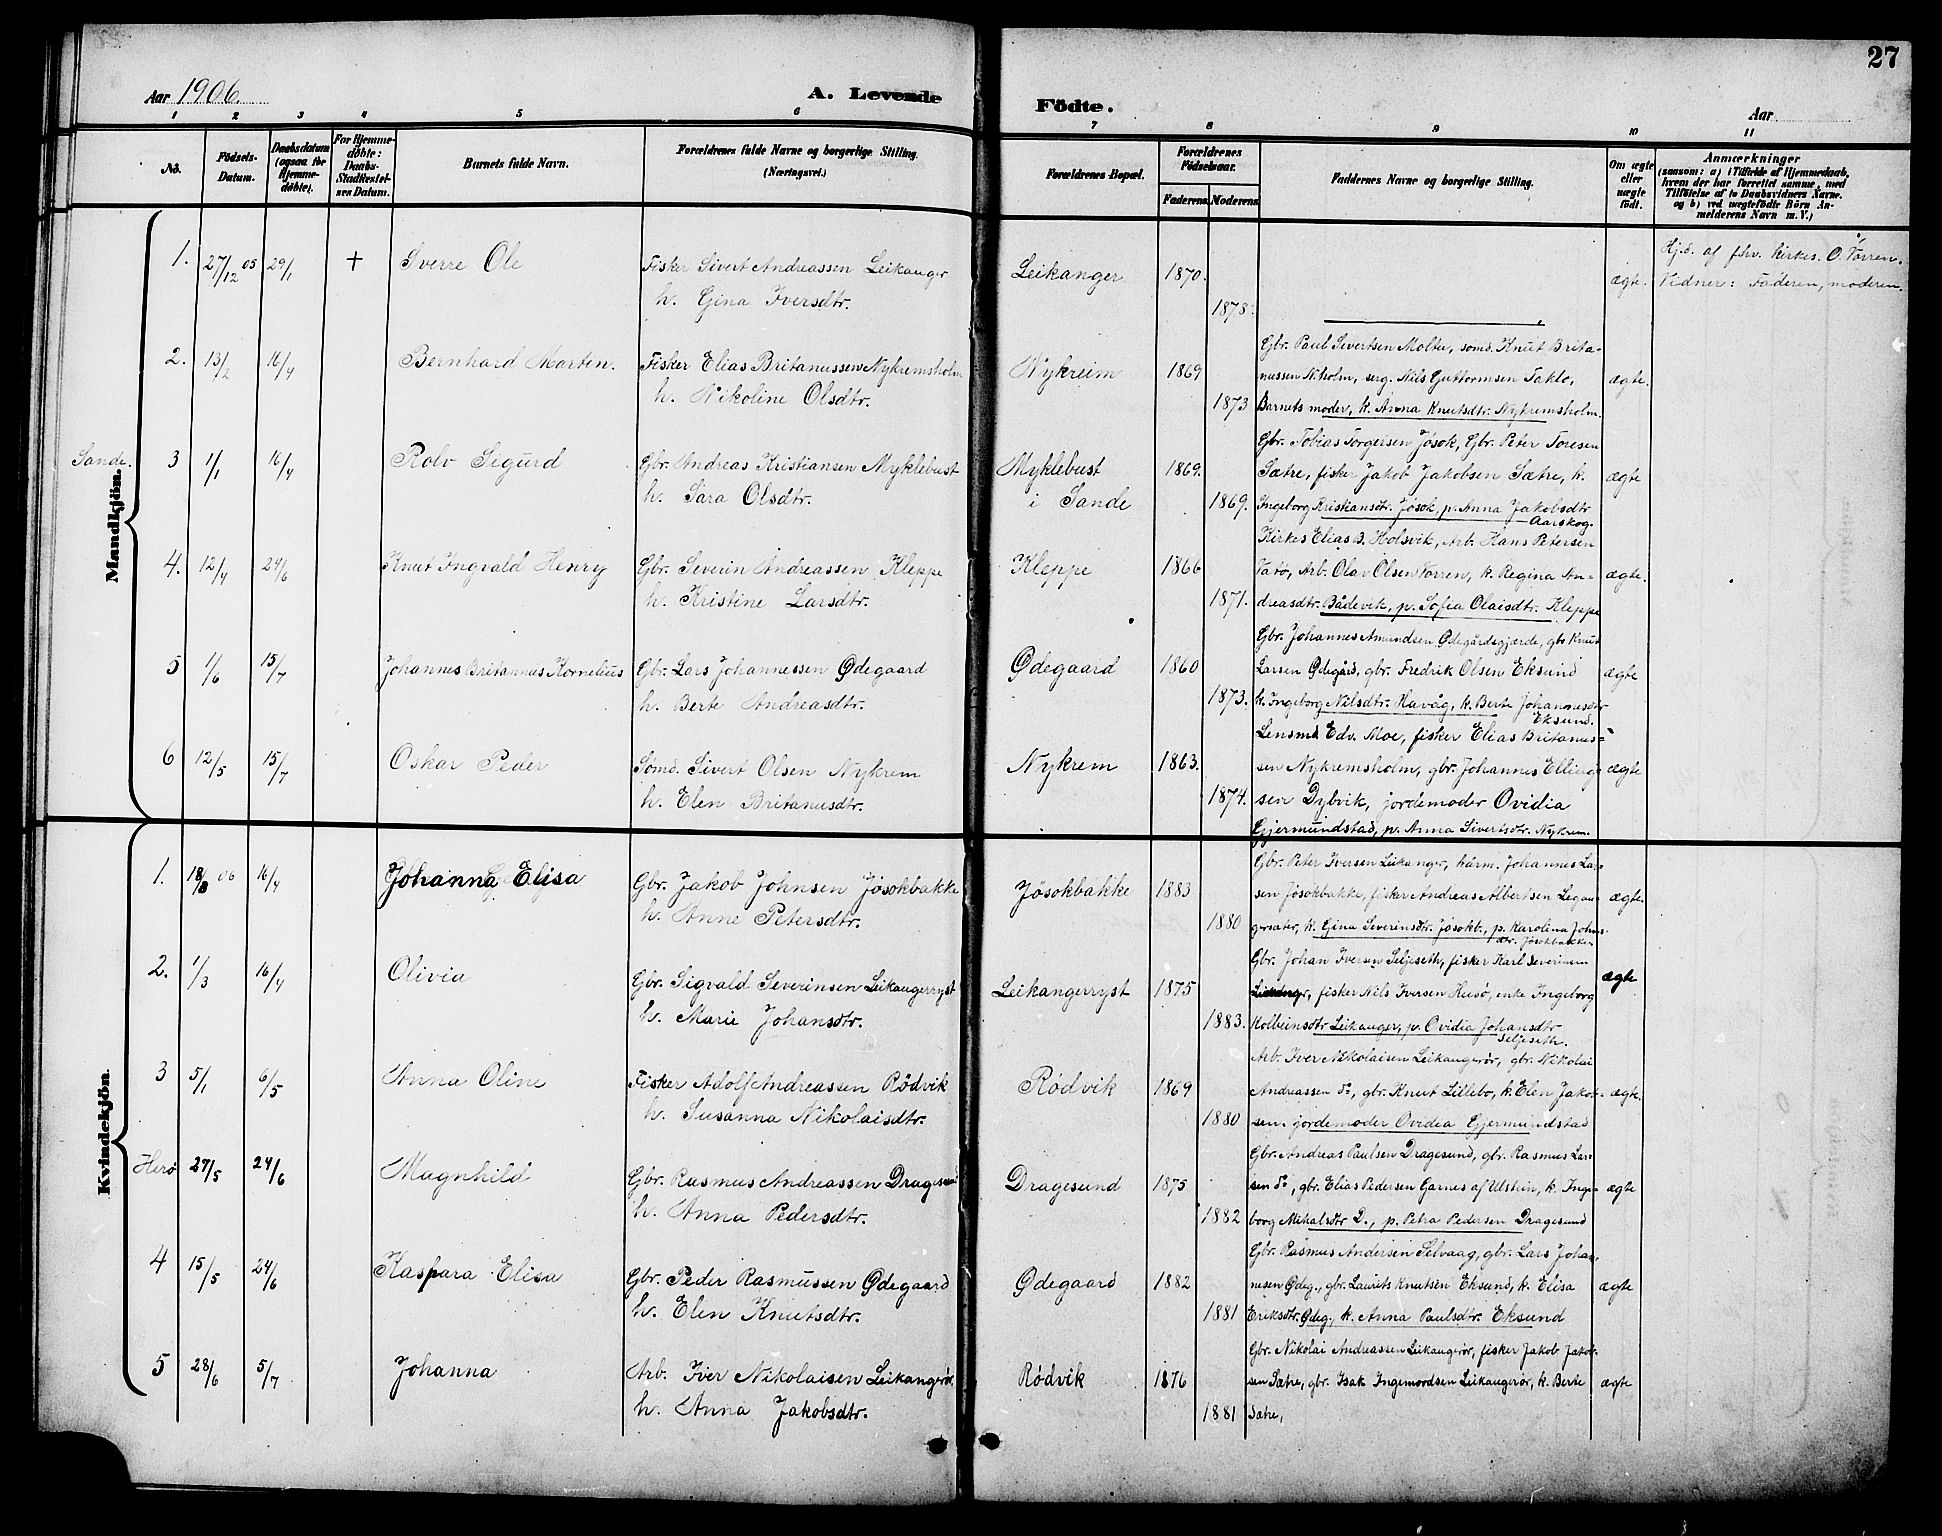 27
Aar 1906. A. Levende Födte. Aar
1 2 3 4 5 6 7 8 9 10 11
No.
Födsels-
Datum.
Daabsdatum
(ogsaa for
Hjemme-
døbte).
For Hjemme-
døbte:
Daabs-
Stadfæstel-
ses Datum.
Barnets fulde Navn.
Forældrenes fulde Navne og borgerlige Stilling.
(Næringsvei.)
Forældrenes Bopæl.
Forældrenes
Födselsaar.
Faderens. Moderens.
Faddernes Navne og borgerlige Stilling.
Om ægte
eller
uægte
födt.
Anmærkninger
(saasom: a) i Tilfælde af Hjemmedaab,
hvem der har forrettet samme, med
Tilföielse af to Daabsvidners Navne.
og b) ved uægtefödte Börn An-
melderens Navn m. V.)
Mandkjön.
1. 27/12 05 29/1 + Sverre Ole
Fisker Sivert Andreassen Leikanger
h. Gina Iversdtr.
Leikanger 1870.
1878.
ægte.
Hjd. af fhv. Kirkes. O. Vorren.
Vidner: Faderen, moderen.
2. 13/2 16/4 Bernhard Marten.
Fisker Elias Britanussen Nykremsholm
h. Nikoline Olsdtr.
Nykreim 1869
1873
Gbr. Paul Sivertsen Moltu, sømd. Knut Brita-
nussen Niholm, serg. Nils Guttormsen Taklo,
Barnets moder, k. Anna Knutsdtr. Nykremsholm.
ægte.
Sande. 3 1/1 16/4 Rolv Sigurd
Gbr. Andreas Kristiansen Myklebust
h. Sara Olsdtr.
Myklebust
i Sande
1869.
1869.
Gbr. Tobias Torgersen Jøsok, Gbr. Peter Toresen
Sætre, fisker Jakob Jakobsen Sætre, k.
Ingeborg Kristiansdtr. Jøsok, p. Anna Jakobsdtr
Aarskog.
ægte
4. 12/4 24/6 Knut Ingvald Henry
Gbr. Severin Andreassen Kleppe
h. Kristine Larsdtr.
Kleppe 1866
1871.
Kirkes Elias B. Holsvik, Arb. Hans Petersen
Vatø, Arb. Olav Olsen Vorren, k. Regina An-
dreasdtr. Bådevik, p. Sofia Olaisdtr. Kleppe
ægte.
5 1/6 15/7 Johannes Britannus Kornelius
Gbr. Lars Johannessen Ødegaard
h. Berte Andreasdtr.
Ødegaard 1860
1873.
Gbr. Johannes Amundsen Ødegårdsgjærde, gbr Knut
Larsen Ødegård, gbr. Fredrik Olsen Eksund
k. Ingeborg Nilsdtr. Havåg, k. Berte Johannesdtr
Eksund.
ægte
6 12/5 15/7 Oskar Peder
Sömd. Sivert Olsen Nykrem
h. Elen Britanusdtr.
Nykrem 1863.
1874.
Lensmd. Edv. Moe, fisker Elias Britanus-
sen Nykremsholm, gbr. Johannes Elling-
sen Dybvik, jordemoder Ovidia
Gjermundstad, p. Anna Sivertsdtr. Nykrem.
ægte
Kvindekjön.
1. 18/3 06 16/4 Johanna Elisa
Gbr. Jakob Johnsen Jösokbakke
h. Anne Petersdtr.
Jösokbakke 1883
1880
Gbr. Peter Iversen Leikanger, kårm. Johannes Lar-
sen Jösokbakke, fisker Andreas Albertsen Legan-
gersæter, k. Gina Severinsdtr. Jøsokb., p. Karolina Johns-
dtr. Jösokbakken
ægte.
2. 1/3 16/4 Olivia
Gbr. Sigvald Severinsen Leikangerryst
h. Marie Johansdtr.
Leikangerryst 1875
1883.
Gbr. Johan Iversen Seljeseth, fisker Karl Severinsen
Leikanger, fisker Nils Iversen Husö, enke Ingeborg
Kolbeinsdtr Leikanger, p. Ovidia Johansdtr
Seljeseth.
ægte
3 5/1 6/5 Anna Oline
Fisker Adolf Andreassen Rödvik
h. Susanna Nikolaisdtr.
Rödvik 1869
1880
Arb. Iver Nikolaisen Leikangerör, gbr. Nikolai
Andreassen do, gbr. Knut Lillebo, k. Elen Jakob-
sen. jordemoder Ovidia Gjermundstad
ægte.
Herø 27/5 24/6 Magnhild
Gbr. Rasmus Andreassen Dragesund
h. Anna Pedersdtr.
Dragesund 1875
1882
Gbr. Andreas Paulsen Dragesund, gbr. Rasmus Lar-
sen do, gbr. Elias Pedersen Garnes af Ulstein, k. Inge-
borg Mikalsdtr D., p. Petra Pedersen Dragesund
ægte
4 15/5 24/6 Kaspara Elisa
Gbr. Peder Rasmussen Ødegaard
h. Elen Knutsdtr.
Ødegaard 1882
1881
Gbr. Rasmus Andersen Selvaag, gbr. Lars Johan-
nesen Ødeg., gbr. Laurits Knutsen Eksund, k. Elisa
Eriksdtr. Ødeg., k. Anna Paulsdtr. Eksund
ægte
5 28/6 5/7 Johanna
Arb. Iver Nikolaisen Leikangerör.
h. Anna Jakobsdtr.
Rödvik 1876
1881
Gbr. Nikolai Andreassen Leikangerör, fisker Jakob Jakob-
sen Sætre, gbr. Isak Ingemordsen Leikangerör, k. Berte
Sætre,
ægte